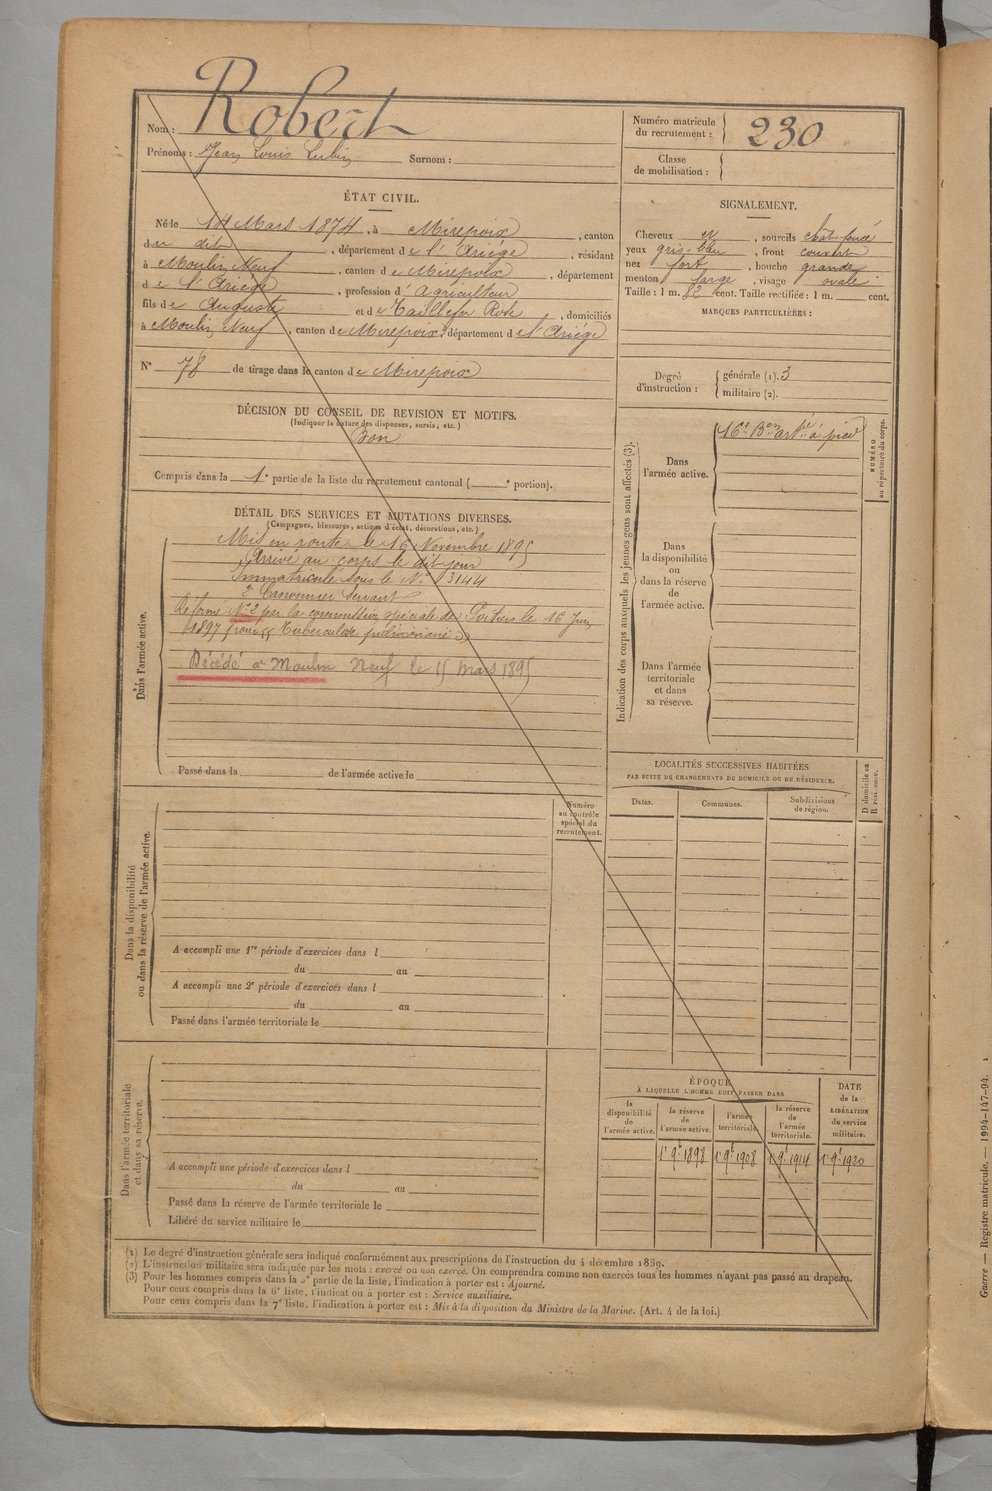 Nom : Robert
Prénoms : Jean Louis Lubin Surnom :
Numéro matricule du recrutement : 230
Classe de mobilisation :
ÉTAT CIVIL.
Né le 14 Mars 1874, à Mirepoix, canton
de dit, département de l'Ariége, résidant
à Moulin Neuf, canton de Mirepoix, département
de l'Ariége, profession d'Agriculteur
fils de Auguste et de Taillefer Rose, domiciliés
à Moulin Neuf, canton de Mirepoix, département de l'Ariége
N° 78 de tirage dans le canton de Mirepoix
SIGNALEMENT.
Cheveux et, sourcils chât. foncé
yeux gris-bleu, front couvert
nez fort, bouche grande
menton large, visage ovale
Taille : 1 m. 82 cent. Taille rectifiée : 1 m. cent.
MARQUES PARTICULIÈRES :
Degré d'instruction : générale (1). 3
militaire (2).
DÉCISION DU CONSEIL DE REVISION ET MOTIFS.
(Indiquer la nature des dispenses, sursis, etc.)
Bon
Compris dans la 1e partie de la liste du recrutement cantonal ( e portion).
DÉTAIL DES SERVICES ET MUTATIONS DIVERSES.
(Campagnes, blessures, actions d'éclat, décorations, etc.)
Dans l'armée active.
Mis en route le 16 Novembre 1895
Arrivé au corps le dit jour
Immatriculé sous le N° 3144
2e Canonnier Servant
Réformé N° 2 par la commission spéciale de Poitiers le 16 Juin
1897 pour "Tuberculose pulmonaire"
Décédé à Moulin Neuf le 15 mars 1895
Passé dans la de l'armée active le
Indication des corps auxquels les jeunes gens sont affectés (3).
Dans l'armée active.
16e Bon artrie à pied
NUMÉRO au répertoire du corps.
Dans la disponibilité ou dans la réserve de l'armée active.
Dans l'armée territoriale et dans sa réserve.
LOCALITÉS SUCCESSIVES HABITÉES
PAR SUITE DE CHANGEMENTS DE DOMICILE OU DE RÉSIDENCE.
Dates. Communes. Subdivisions de région. D domicile ou R résidence.
Dans la disponibilité ou dans la réserve de l'armée active.
Numéro au contrôle spécial du recrutement.
A accompli une 1re période d'exercices dans l
du au
A accompli une 2e période d'exercices dans l
du au
Passé dans l'armée territoriale le
Dans l'armée territoriale et dans sa réserve.
A accompli une période d'exercices dans l
du au
Passé dans la réserve de l'armée territoriale le
Libéré du service militaire le
ÉPOQUE
À LAQUELLE L'HOMME DOIT PASSER DANS
la disponibilité de l'armée active.
la réserve de l'armée active.
l'armée territoriale.
la réserve de l'armée territoriale.
DATE de la LIBÉRATION du service militaire.
1er 9bre 1898 1er 9bre 1908 1er 9bre 1914 1er 9bre 1920
(1) Le degré d'instruction générale sera indiqué conformément aux prescriptions de l'instruction du 4 décembre 1889.
(2) L'instruction militaire sera indiquée par les mots : exercé ou non exercé. On comprendra comme non exercés tous les hommes n'ayant pas passé au drapeau.
(3) Pour les hommes compris dans la 5e partie de la liste, l'indication à porter est : Ajourné.
Pour ceux compris dans la 6e liste, l'indication à porter est : Service auxiliaire.
Pour ceux compris dans la 7e liste, l'indication à porter est : Mis à la disposition du Ministre de la Marine. (Art. 4 de la loi.)
Guerre — Registre matricule. — 1994-147-94.